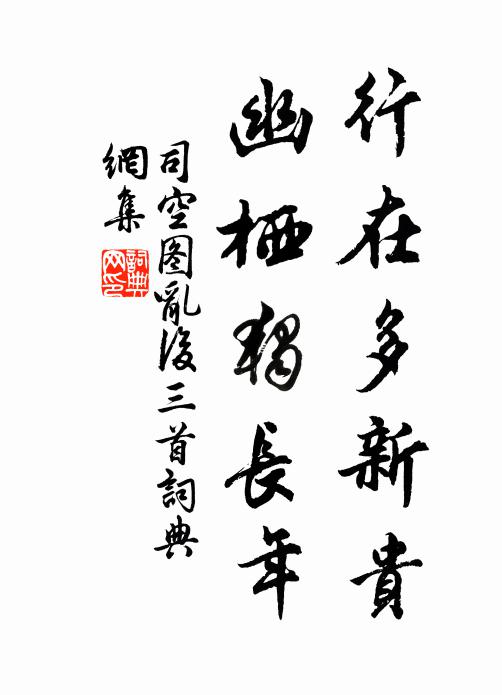 行在多新貴
幽栖獨長年
司空图亂後三首詞典
網集
詞典
网印